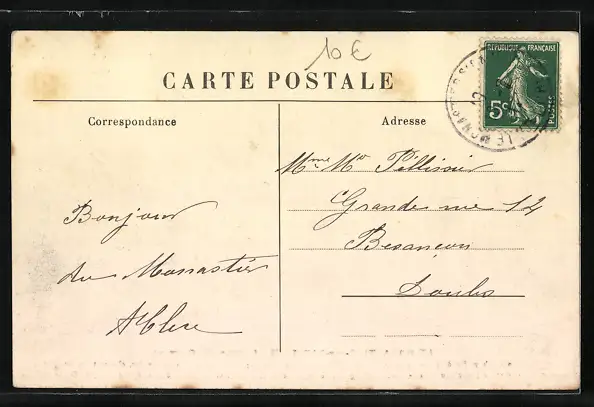 10 €
CARTE POSTALE
Correspondance
Adresse
REPUBLIQUE FRANÇAISE
5c
POSTES
LE MONAST
Mme Mr Pellissier
Grande rue 12
Besançon
Doubs
Bonjour
du Monastier